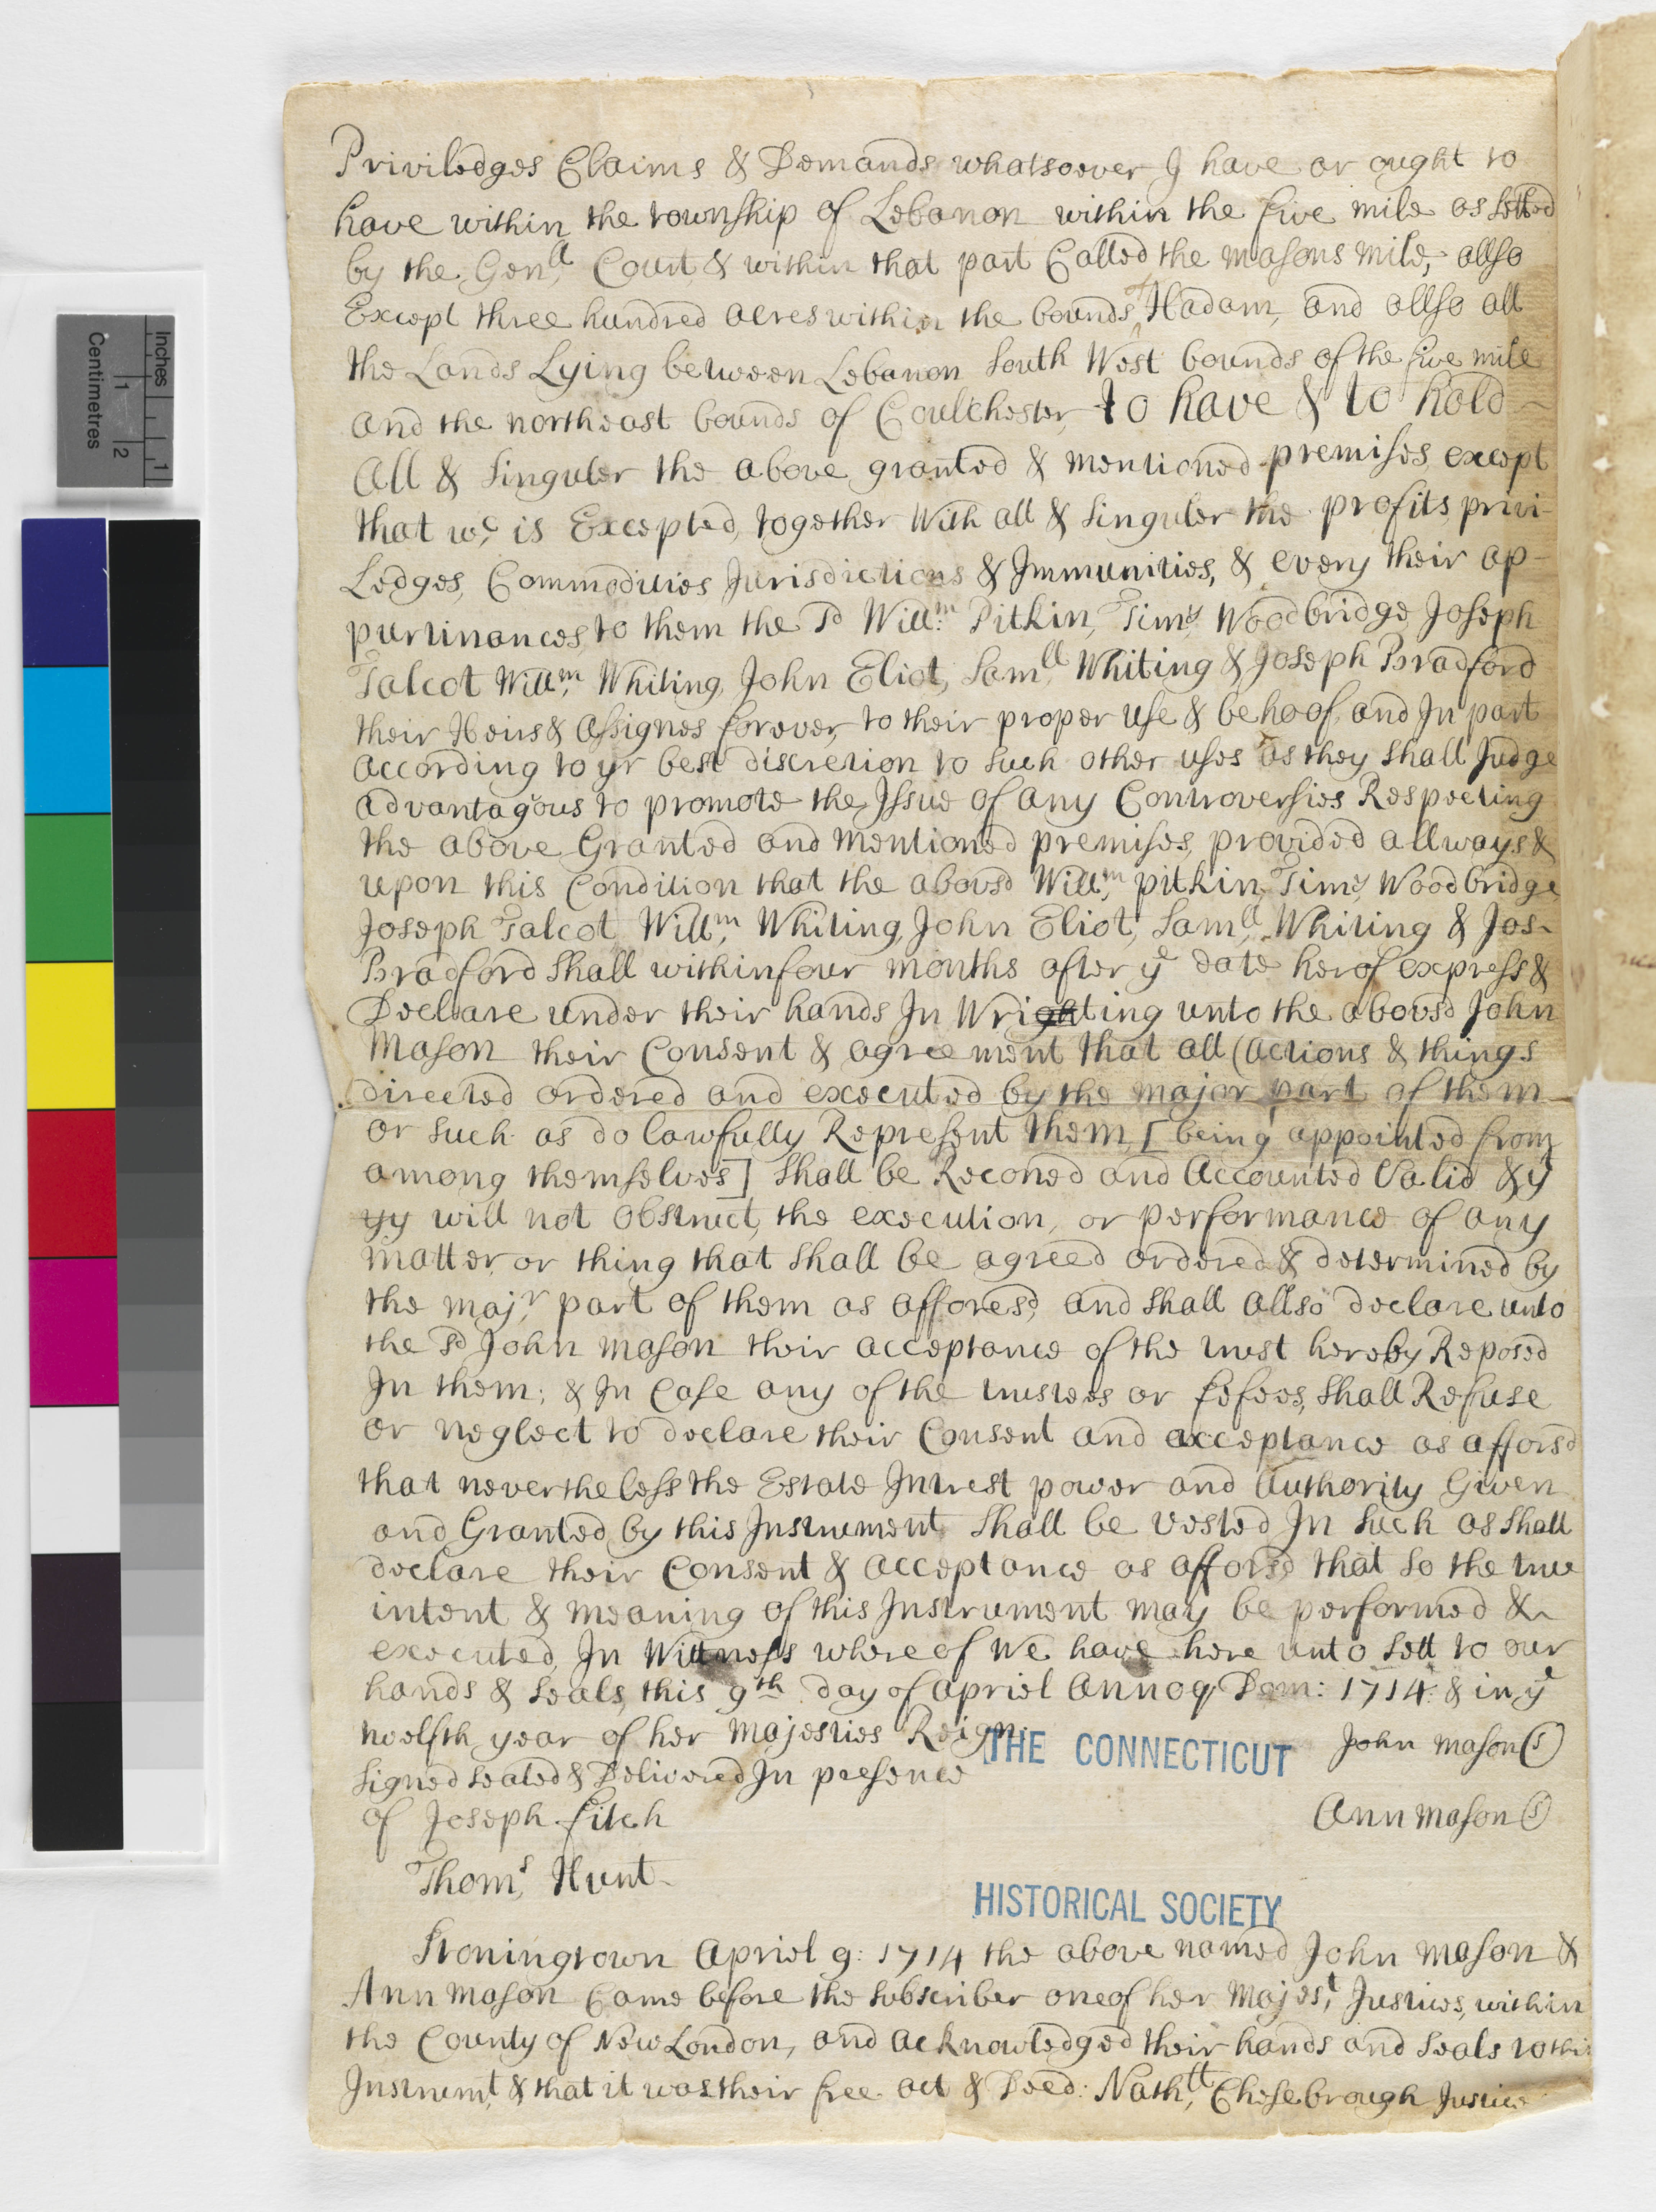 Priviledges Claims & Demands whatsoever I have or ought to
have within the township of Lebanon within the five mile as settled
by the Genll Court & within that part Called the Masons mile, allso
Except three hundred acres within the bounds of Hadam, and allso all
the Lands Lying between Lebanon South West bounds of the five mile
and the northeast bounds of Coulchester, to have & to hold
All & Singuler the above granted & mentioned premises, except
that wc is Excepted, together With all & Singuler the profits, privi-
Ledges, Commodities Jurisdictions & Immunities, & every their ap-
purtinances, to them the sd Willm Pitkin, Timy Woodbridge, Joseph
Talcot Willm Whiting, John Eliot, Samll Whiting & Joseph Bradford
their Heirs & Assignes forever, to their proper Use & behoof, and In part
according to yr best discretion to such other uses as they shall Judge
advantagous to promote the Issue of any Controversies Respecting
the above Granted and mentioned premises, provided allways &
upon this Condition that the abovsd Willm pitkin, Timy Woodbridge
Joseph Talcot, Willm Whiting, John Eliot, Samll Whiting & Jos
Bradford Shall within four months after ye date herof express &
Declare under their hands In Wrighting unto the abovsd John
Mason their Consent & agreement that all (actions & things
directed ordered and executed by the major part of them
or such as do lawfully Represent them, [being appointed from
among themselves] shall be Reconed and Accounted Valid & y
yy will not obstruct, the execution, or performance of any
matter or thing that shall be agreed ordered & determined by
the majr part of them as afforesd, and shall allso declare unto
the sd John Mason their acceptance of the trust hereby Reposed
In them; & In Case any of the trustees or fefees, Shall Refuse
or neglect to declare their Consent and acceptance as afforsd
that nevertheless the Estate Intrest power and Authority Given
and Granted by this Instrument Shall be vested In such as shall
declare their Consent & acceptance as afforsd that so the true
intent & meaning of this Instrument may be performed &
executed, In Wittness whereof We have here unto sett to our
hands & seals, this 9th day of Apriel Annoq Dom: 1714: & in ye
twelfth year of her majesties Reign.
John Mason (s)
Signed sealed & Delivered In presence
THE CONNECTICUT
of Joseph fitch
Ann Mason (s)
Thoms Hunt
HISTORICAL SOCIETY
Stoningtown Apriel 9: 1714 the above named John Mason &
Ann Mason Came before the subscriber one of her Majest Justices, within
the County of New London, and acknowledged their hands and seals to this
Instrumt, & that it was their free act & Deed: Nathll Chesebrough Justice
Inches
Centimetres
1
2
1